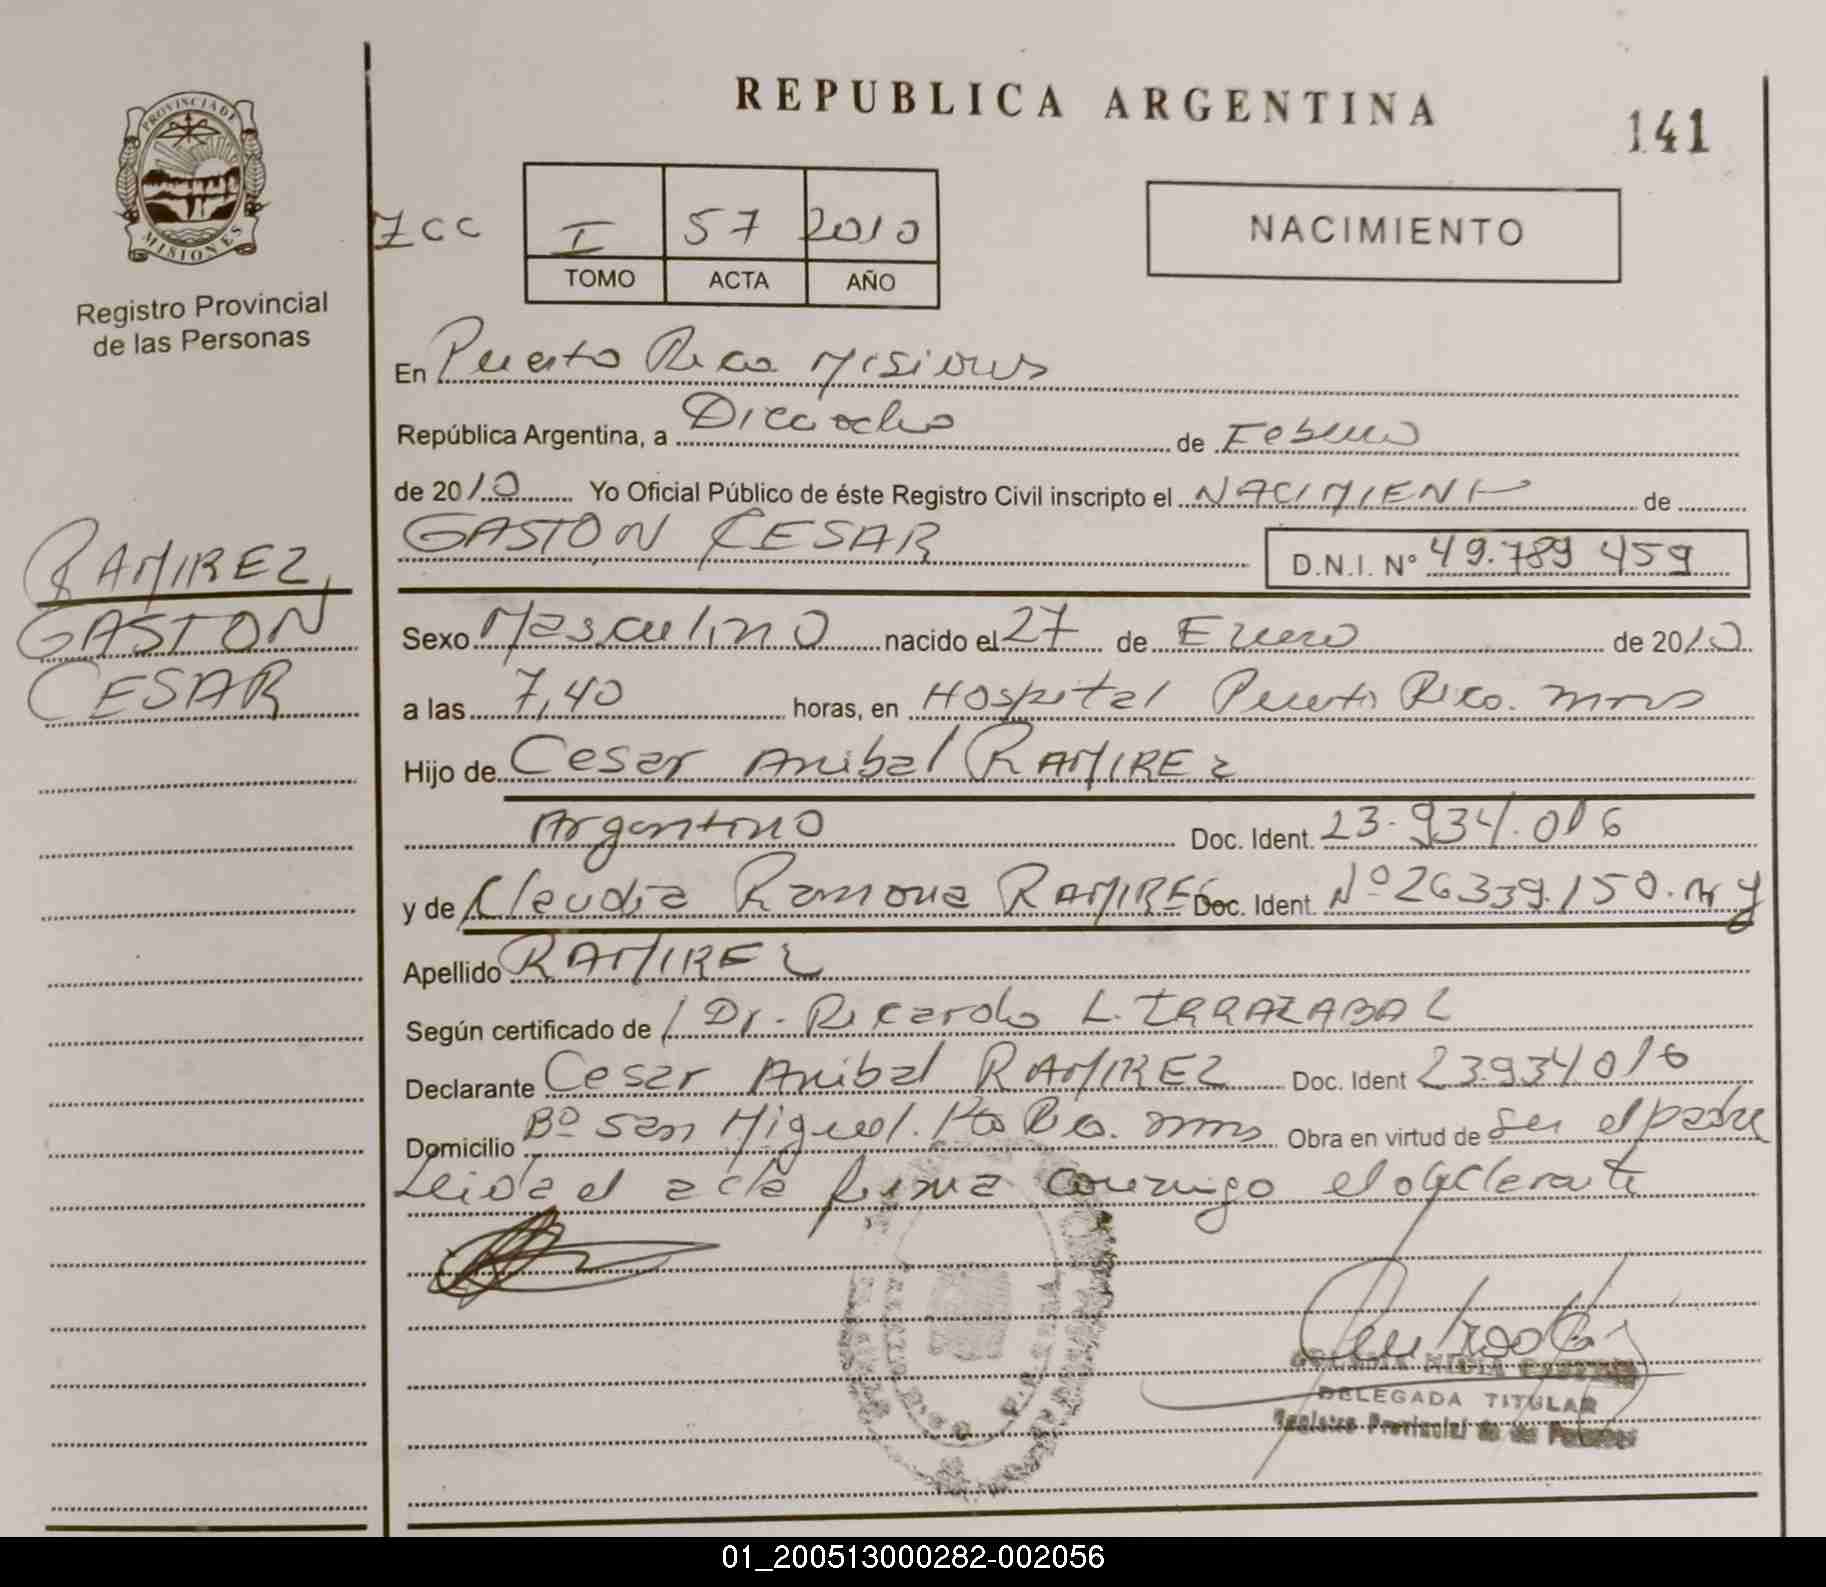 REPUBLICA ARGENTINA
141
PROVINCIA DE
MISIONES
Registro Provincial
de las Personas
I 57 2010
TOMO ACTA AÑO
NACIMIENTO
En Puerto Rico Misiones
República Argentina, a Dieciocho de Febrero
de 2010 Yo Oficial Público de éste Registro Civil inscripto el NACIMIENTO de
GASTON CESAR
D.N.I. Nº 49.789 459
RAMIREZ,
GASTON
CESAR
Sexo Masculino nacido el 27 de Enero de 2010
a las 7,40 horas, en Hospital Puerto Rico. Mnes
Hijo de Cesar Anibal RAMIREZ
Argentino Doc. Ident. 23.934.016
y de Claudia Ramona RAMIREZ Doc. Ident. Nº 26.339.150.
Apellido RAMIREZ
Según certificado de Dr. Ricardo L. IRRAZABAL
Declarante Cesar Anibal RAMIREZ Doc. Ident 23934016
Domicilio Bº San Miguel. Pto Rico. Mnes Obra en virtud de ser el padre
Leida el acta firma conmigo el declarante
DELEGADA TITULAR
Registro Provincial de las Personas
01_200513000282-002056